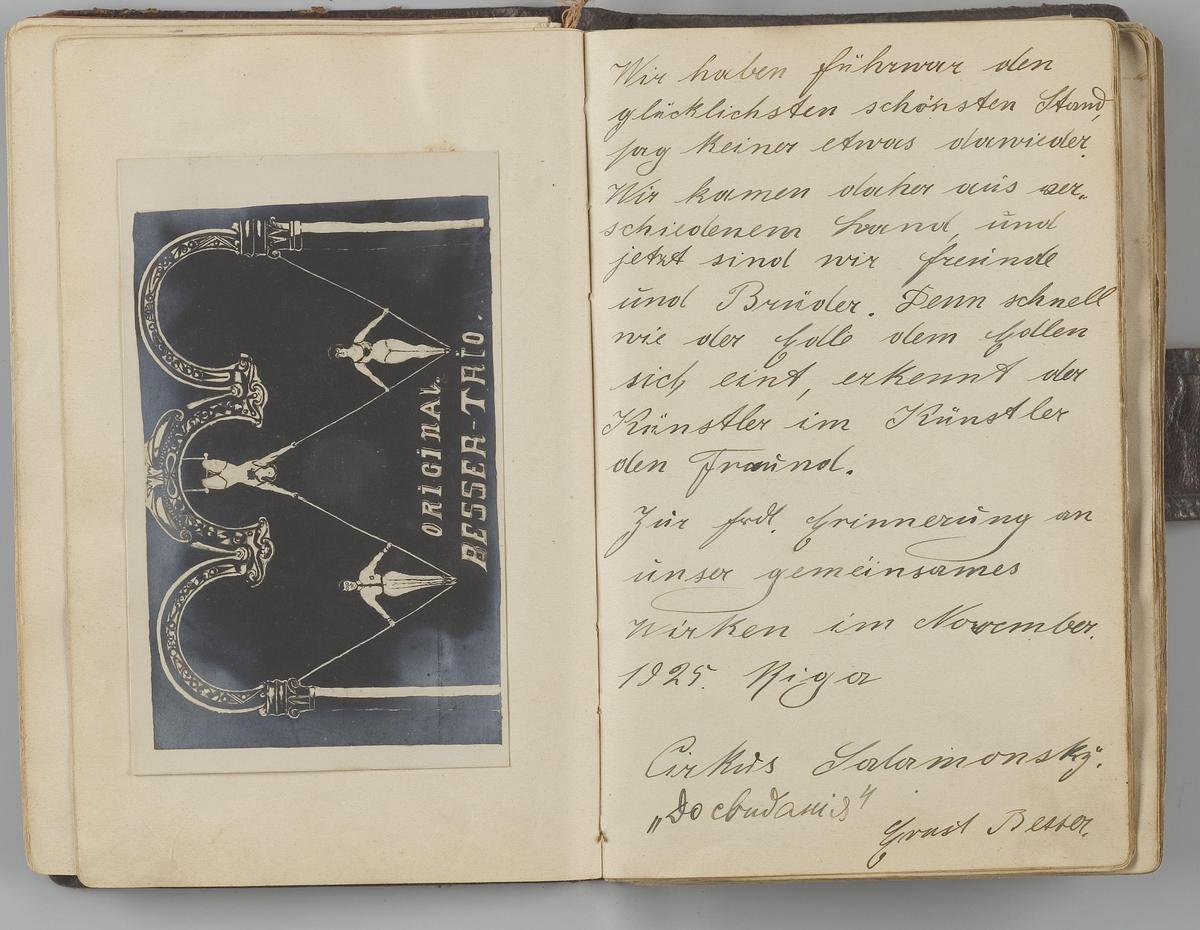 ORIGINAL.
BESSER-TRIO.
Wir haben führwar den
glücklichsten schönsten Stand,
sag keiner etwas dawieder.
Wir kamen daher aus ver-
schiedenem Land, und
jetzt sind wir freunde
und Brüder. Denn schnell
wie der Edle dem Edlen
sich eint, erkennt der
Künstler im Künstler
den Freund.
Zur frdl. Erinnerung an
unser gemeinsames
Wirken im November.
1925. Riga
Cirkus Salamonsky.
Ernst Besser.